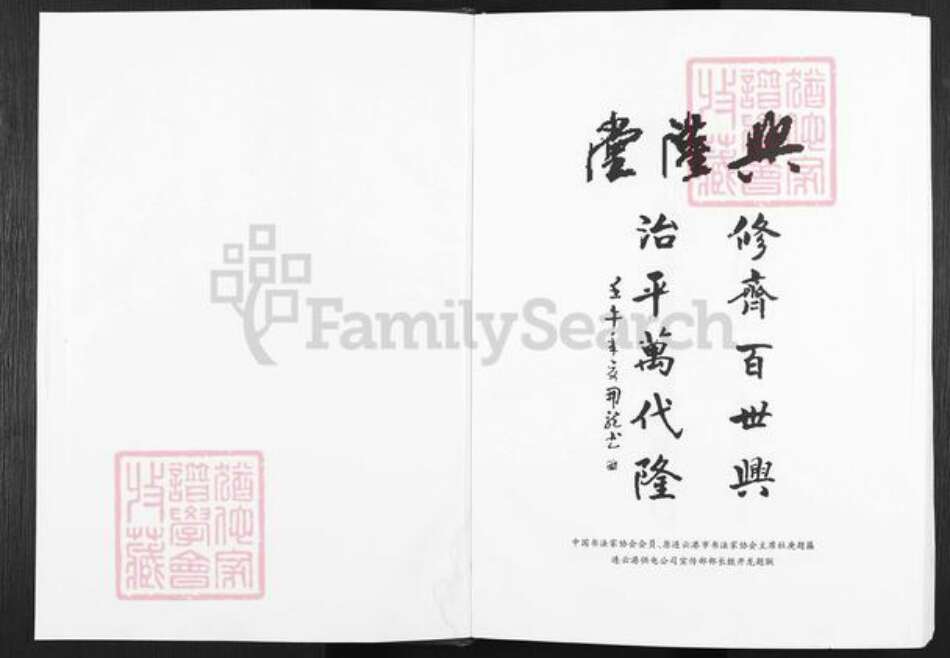 興隆堂
修齊百世興
治平萬代隆
中国书法家协会会员、原连云港市书法家协会主席杜庚题匾
连云港供电公司宣传部部长 开龙题联
FamilySearch
譜學會
收藏
譜學會
收藏